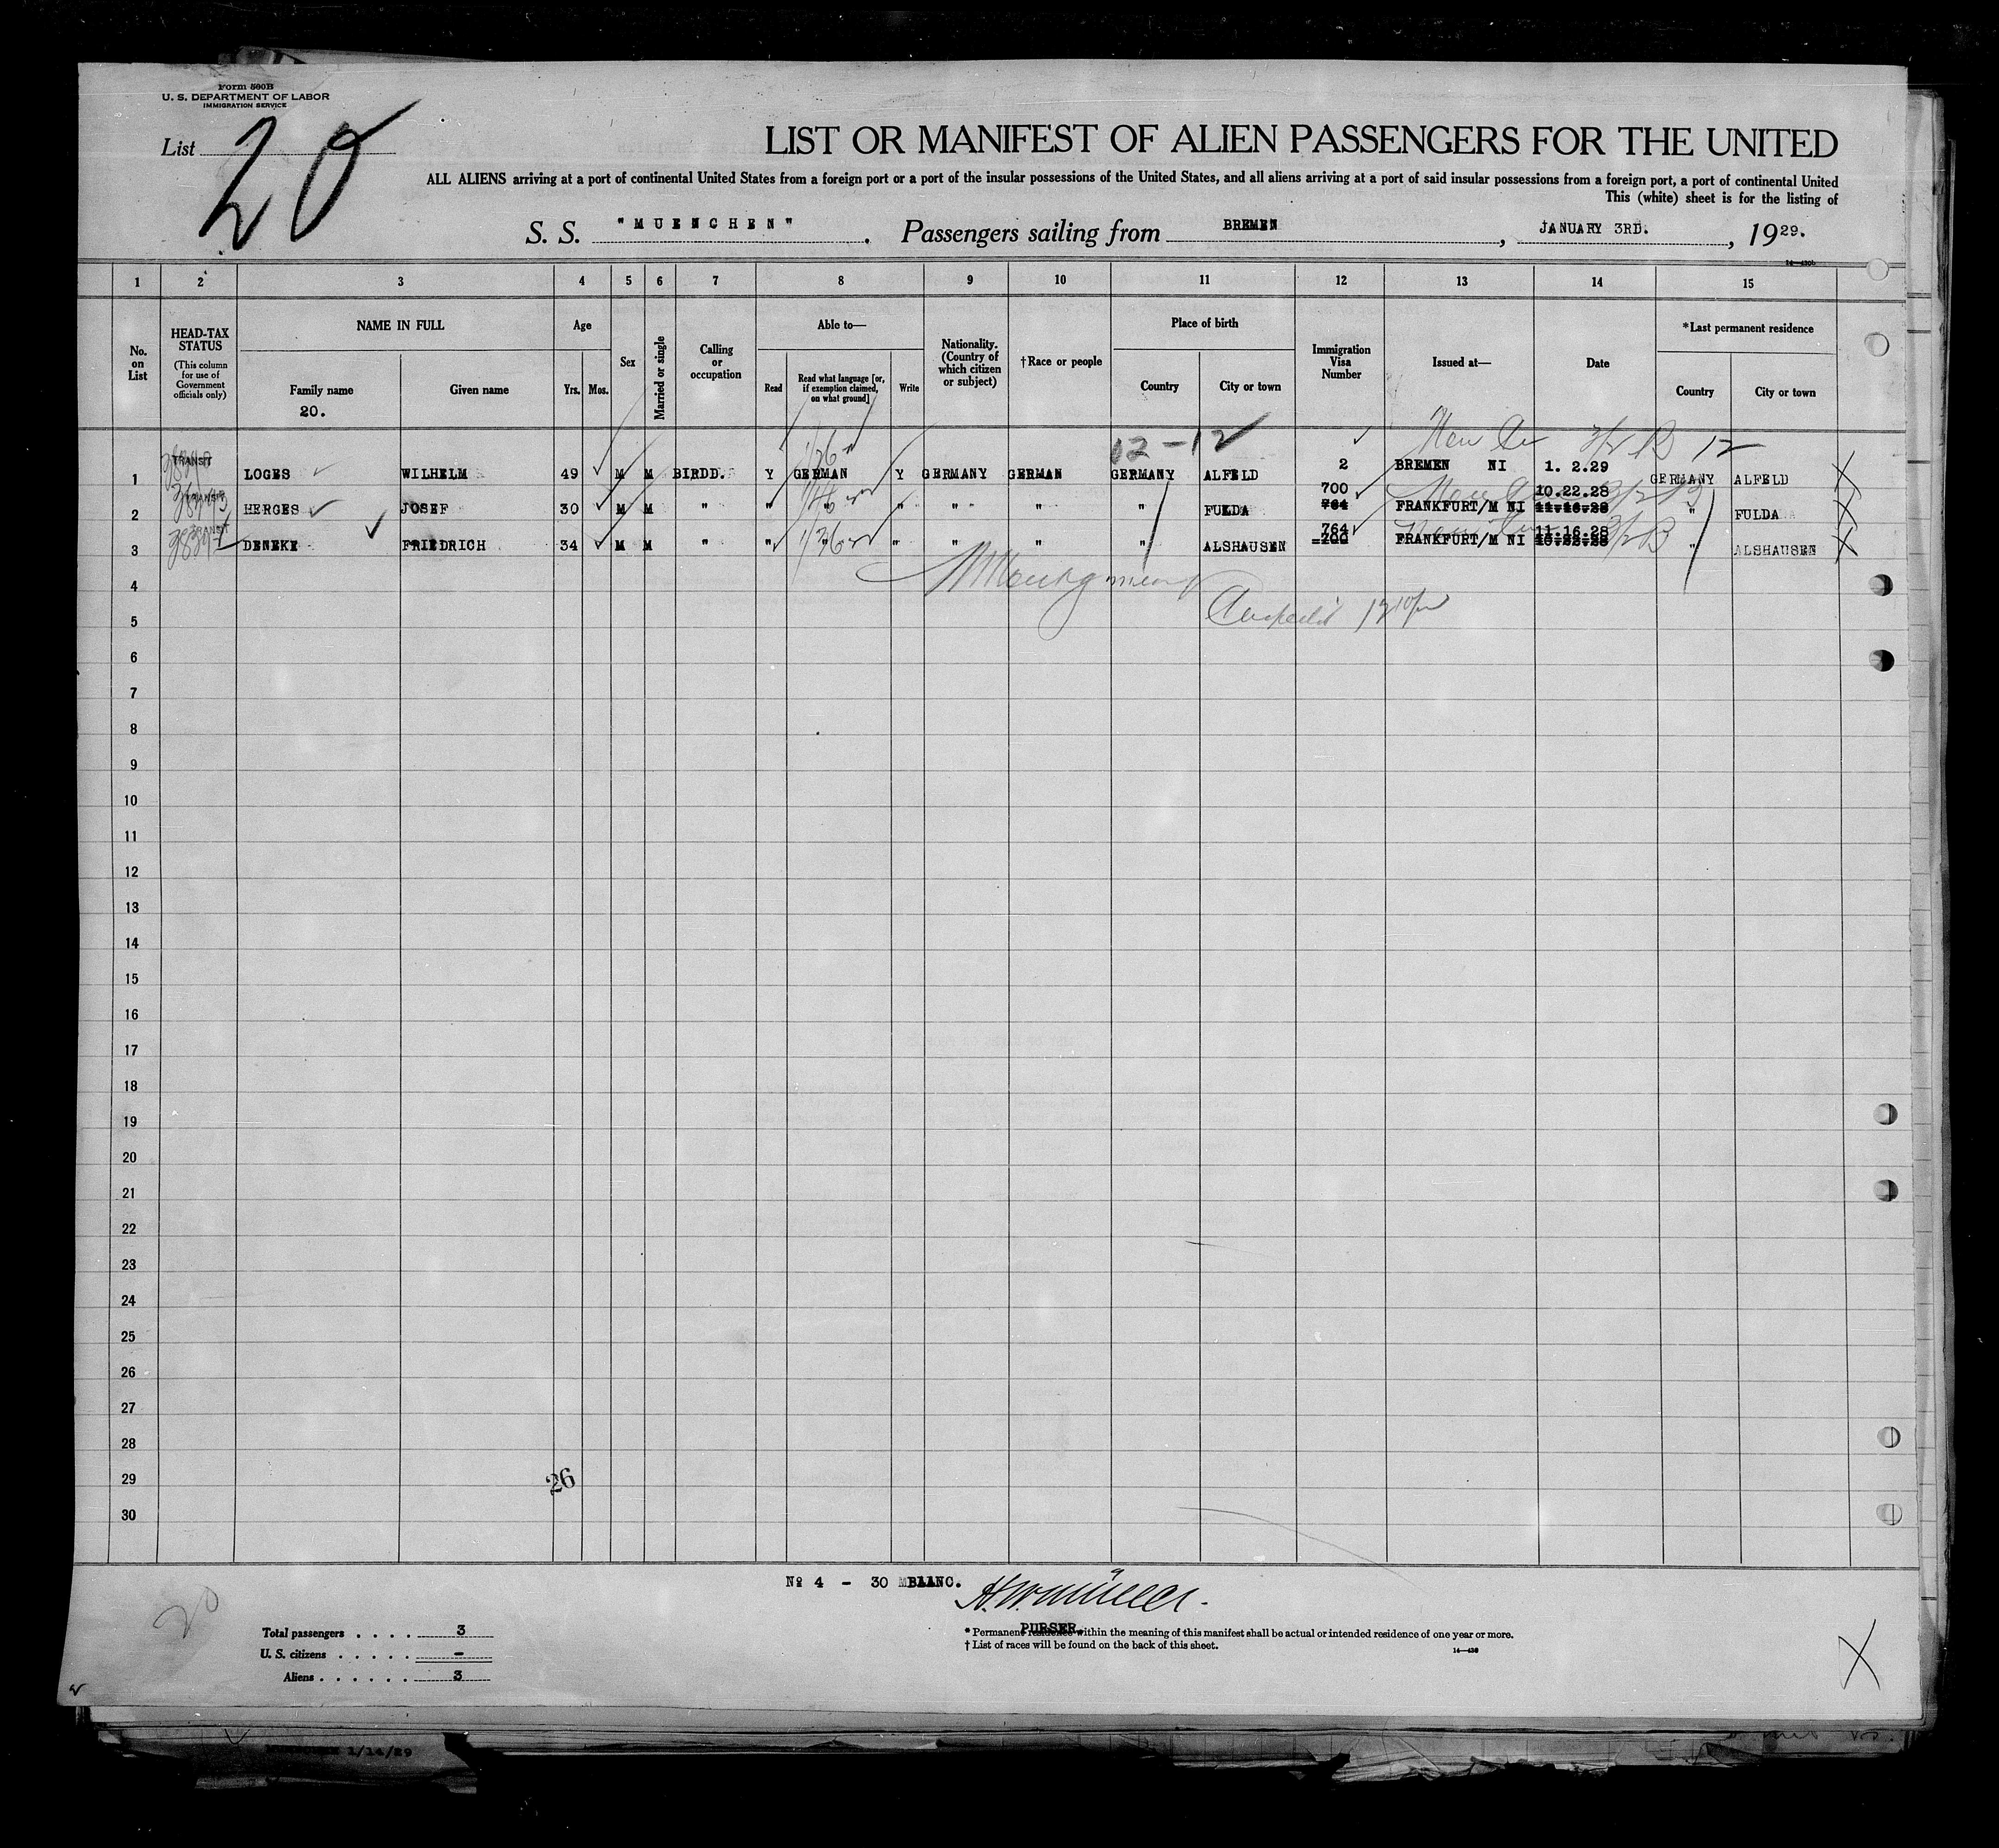 Form 500B
U. S. DEPARTMENT OF LABOR
IMMIGRATION SERVICE
List 20
LIST OR MANIFEST OF ALIEN PASSENGERS FOR THE UNITED
ALL ALIENS arriving at a port of continental United States from a foreign port or a port of the insular possessions of the United States, and all aliens arriving at a port of said insular possessions from a foreign port, a port of continental United
This (white) sheet is for the listing of
S. S. "MUENCHEN". Passengers sailing from BREMEN, JANUARY 3RD., 1929.
1 2 3 4 5 6 7 8 9 10 11 12 13 14 15
No. on List
HEAD-TAX STATUS
(This column for use of Government officials only)
NAME IN FULL
Family name
20.
Given name
Age
Yrs. Mos.
Sex
Married or single
Calling or occupation
Able to—
Read
Read what language [or, if exemption claimed, on what ground]
Write
Nationality. (Country of which citizen or subject)
†Race or people
Place of birth
Country
City or town
Immigration Visa Number
Issued at—
Date
*Last permanent residence
Country
City or town
12-12
12
1 TRANSIT LOGES WILHELM 49 M M BIRDD. Y GERMAN Y GERMANY GERMAN GERMANY ALFELD 2 BREMEN NI 1. 2.29 GERMANY ALFELD
700 10.22.28
2 TRANSIT HERGES JOSEF 30 M M " " " " " " " FULDA 764 FRANKFURT/M NI 11.16.28 " FULDA
764 11.16.28
3 TRANSIT DENEKE FRIEDRICH 34 M M " " " " " " " ALSHAUSEN 700 FRANKFURT/M NI 10.22.28 " ALSHAUSEN
4
5
6
7
8
9
10
11
12
13
14
15
16
17
18
19
20
21
22
23
24
25
26
27
28
29
26
30
№ 4 - 30 BLANC.
PURSER.
Total passengers . . . . 3
U. S. citizens . . . . . -
Aliens . . . . . . 3
20
* Permanent residence within the meaning of this manifest shall be actual or intended residence of one year or more.
† List of races will be found on the back of this sheet.
1/14/29